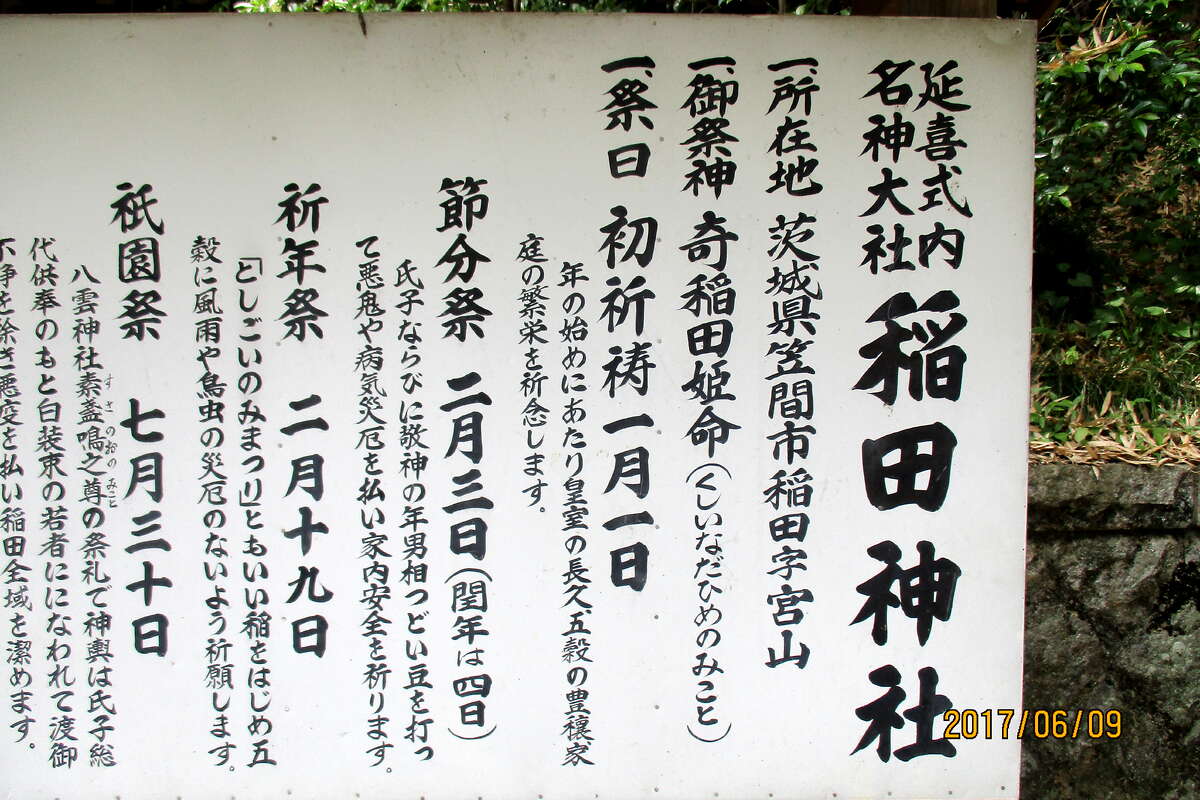 延喜式内
名神大社
稲田神社
一、所在地 茨城県笠間市稲田字宮山
一、御祭神 奇稲田姫命(くしいなだひめのみこと)
一、祭日 初祈祷 一月一日
年の始めにあたり皇室の長久、五穀の豊穰家
庭の繁栄を祈念します。
節分祭 二月三日(閏年は四日)
氏子ならびに敬神の年男相つどい豆を打っ
て悪鬼や病気災厄を払い家内安全を祈ります。
祈年祭 二月十九日
「としごいのみまつり」ともいい稲をはじめ五
穀に風雨や鳥虫の災厄のないよう祈願します。
祇園祭 七月三十日
八雲神社素盞鳴之尊の祭礼で神輿は氏子総
すさのおのみこと
代供奉のもと白装束の若者にになわれて渡御
不浄を除き悪疫を払い稲田全域を潔めます。
2017/06/09